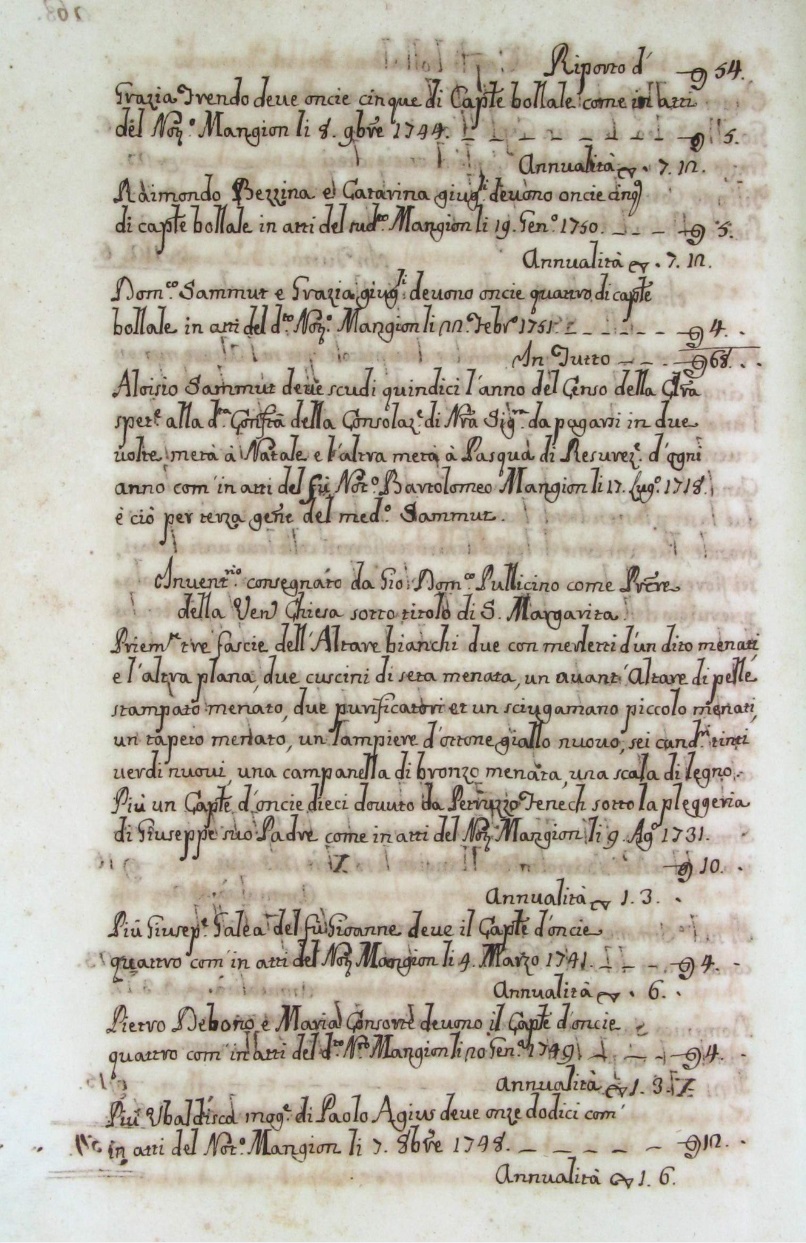 Riporto d' 54.
Grazia Trendo deve oncie cinque di Cap̃le bollale come in atti
del Not.º Mangion li 8. 9bre 1744. _ _ _ _ _ _ 5.
Annualità . 7. 12.
Raimondo Bezzina e Catarina giug.li devono oncie cinq
di cap̃le bollale in atti del sud.to Mangion li 19. Gen.º 1750. _ _ _ 5.
Annualità . 7. 12.
Dom.co Sammut e Grazia giug.li devono oncie quattro di cap̃le
bollale in atti del d.to Not.º Mangion li 22. Febr.º 1751. _ _ _ _ _ 4. .
In Tutto _ _ _ 68. . .
Aloisio Sammut deve scudi quindici l'anno del Censo della
spet.e alla d.ta Confr̃a della Consolaz.e di Nr̃a Sig.ra da pagarsi in due
volte metà à Natale e l'altra metà à Pasqua di Resurez.e d'ogni
anno com' in atti del fù Not.º Bartolomeo Mangion li 17. Lug.º 1718.
è ciò per terza gen̄e del med.º Sammut.
Invent.rio consegnato da Gio: Dom.co Pullicino come
della Ven. Chiesa sotto titolo di S. Margarita.
Priem.te tre fascie dell'Altare bianchi due con merletti d'un dito menati
e l'altra plana, due cuscini di seta menata, un avant'Altare di pelle
stampato menato, due purificatori et un sciugamano piccolo menati,
un tapeto menato, un lampiere d'ottone giallo nuovo, sei cand.ri tinti
verdi nuovi, una campanella di bronzo menata, una scala di legno.
Più un Cap̃le d'oncie dieci dovuto da Petruzzo Fenech sotto la pleggeria
di Giuseppe suo Padre come in atti del Not. Mangion li 9. Ag.º 1731.
10. .
Annualità 1. 3. .
Più Giusep.e Galea del fù Gioanne deve il Cap̃le d'oncie
quattro com' in atti del Not. Mangion li 4. Marzo 1741. _ _ _ 4. .
Annualità . 6. .
Pietro Debono, e Maria Consorte devono il Cap̃le d'oncie
quattro com' in atti del d.to Not. Mangion li 20 Gen.º 1749 _ _ _ 4. .
Annualità 1. 3.
Più Ubaldisca mog.e di Paolo Agius deve onze dodici com'
in atti del Not.º Mangion li 7. 8bre 1748. _ _ _ _ _ 12. .
Annualità 1. 6.